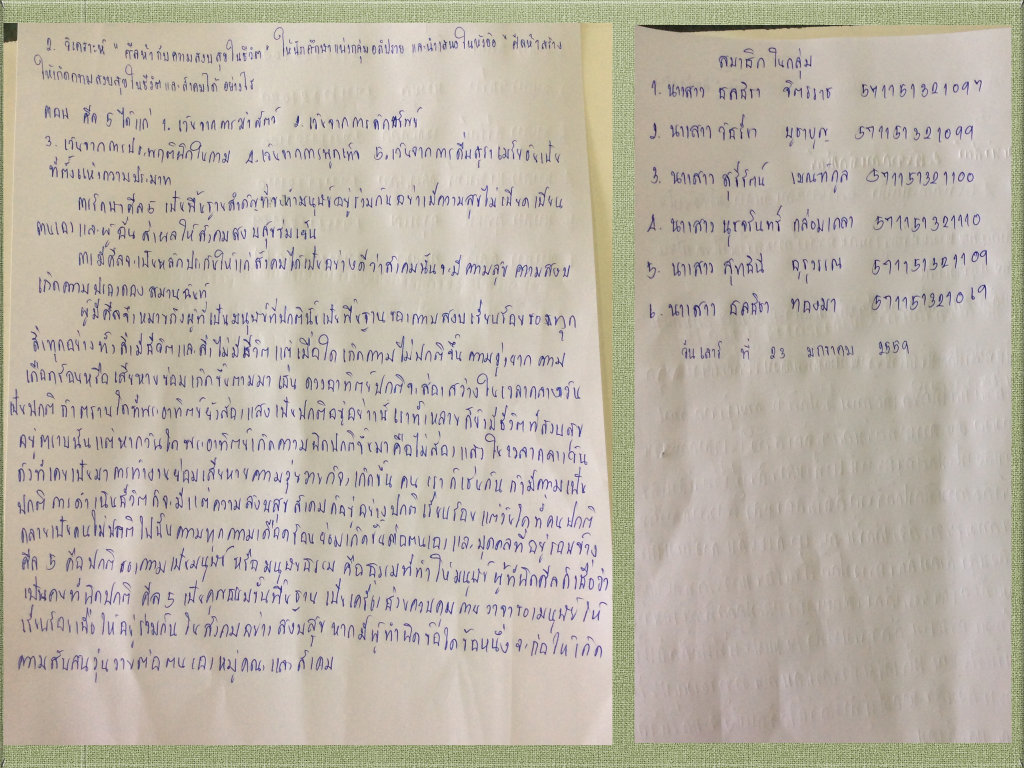 2. วิเคราะห์ "ศีลห้ากับความสงบสุขในชีวิต" ให้นักศึกษาแบ่งกลุ่มอภิปราย และนำเสนอในหัวข้อ "ศีลห้าสร้าง
ให้เกิดความสงบสุขในชีวิตและสังคมได้อย่างไร
ตอบ ศีล 5 ได้แก่ 1. เว้นจากการฆ่าสัตว์ 2. เว้นจากการลักทรัพย์
3. เว้นจากการประพฤติผิดในกาม 4. เว้นจากการพูดเท็จ 5. เว้นจากการดื่มสุราเมรัยอันเป็น
ที่ตั้งแห่งความประมาท
การรักษาศีล 5 เป็นพื้นฐานสำคัญที่จะทำมนุษย์อยู่ร่วมกันอย่างมีความสุขไม่เบียดเบียน
ตนเองและผู้อื่น ส่งผลให้สังคมสงบสุขร่มเย็น
การมีศีลจะเป็นหลักประกันให้แก่สังคมได้เป็นอย่างดีว่าสังคมนั้นจะมี ความสุข ความสงบ
เกิดความปรองดอง สมานฉันท์
ผู้มีศีลจึงหมายถึงผู้ที่เป็นมนุษย์ที่ปกตินั้นเป็นพื้นฐานของความสงบเรียบร้อยของทุก
สิ่งทุกอย่างทั้งสิ่งมีชีวิตและสิ่งไม่มีชีวิต แต่เมื่อใดเกิดความไม่ปกติขึ้น ความยุ่งยาก ความ
เดือดร้อนหรือเสียหายย่อมเกิดขึ้นตามมา เช่น ดวงอาทิตย์ปกติจะส่องสว่างในเวลากลางวัน
เป็นปกติ ถ้าตราบใดที่พระอาทิตย์ยังส่องแสงเป็นปกติอยู่อย่างนี้ เราทั้งหลายก็ยังมีชีวิตที่สงบสุข
อยู่ตราบนั้นแต่หากวันใดพระอาทิตย์เกิดความผิดปกติขึ้นมาคือไม่ส่องแสงในเวลากลางวัน
ดังที่เคยเป็นมา การทำงานย่อมเสียหายความวุ่นวายก็จะเกิดขึ้น คนเราก็เช่นกัน ถ้ามีความเป็น
ปกติ การดำเนินชีวิตก็จะมีแต่ความสงบสุข สังคมก็อยู่อย่างปกติ เรียบร้อย แต่วันใดที่คนปกติ
กลายเป็นคนไม่ปกติ ไปนั้นความทุกความเดือดร้อนย่อมเกิดขึ้นต่อตนเองและบุคคลที่อยู่รอบข้าง
ศีล 5 คือปกติของความเป็นมนุษย์ หรือมนุษยธรรม คือธรรมที่ทำให้มนุษย์ ผู้ที่ผิดศีลก็เชื่อว่า
เป็นคนที่ผิดปกติ ศีล 5 เป็นคุณธรรมขั้นพื้นฐาน เป็นเครื่องช่วยควบคุมกาย วาจาของมนุษย์ให้
เรียบร้อยเพื่อให้อยู่ร่วมกันในสังคมอย่างสงบสุข หากมีผู้ทำผิดข้อใดข้อหนึ่งจะก่อให้เกิด
ความสับสนวุ่นวายต่อตนเองหมู่คณะและสังคม
สมาชิกในกลุ่ม
1. นางสาว ชลธิชา จิตรราช 571151321097
2. นางสาว วัชรียา บูชาบุญ 571151321099
3. นางสาว สุรีรัตน์ เมณฑ์กูล 571151321100
4. นางสาว นุชจรินทร์ กล่อมเกลา 571151321110
5. นางสาว สุทธินี 571151321109
6. นางสาว ชลธิชา ทองมา 571151321069
วันเสาร์ ที่ 23 มกราคม 2559